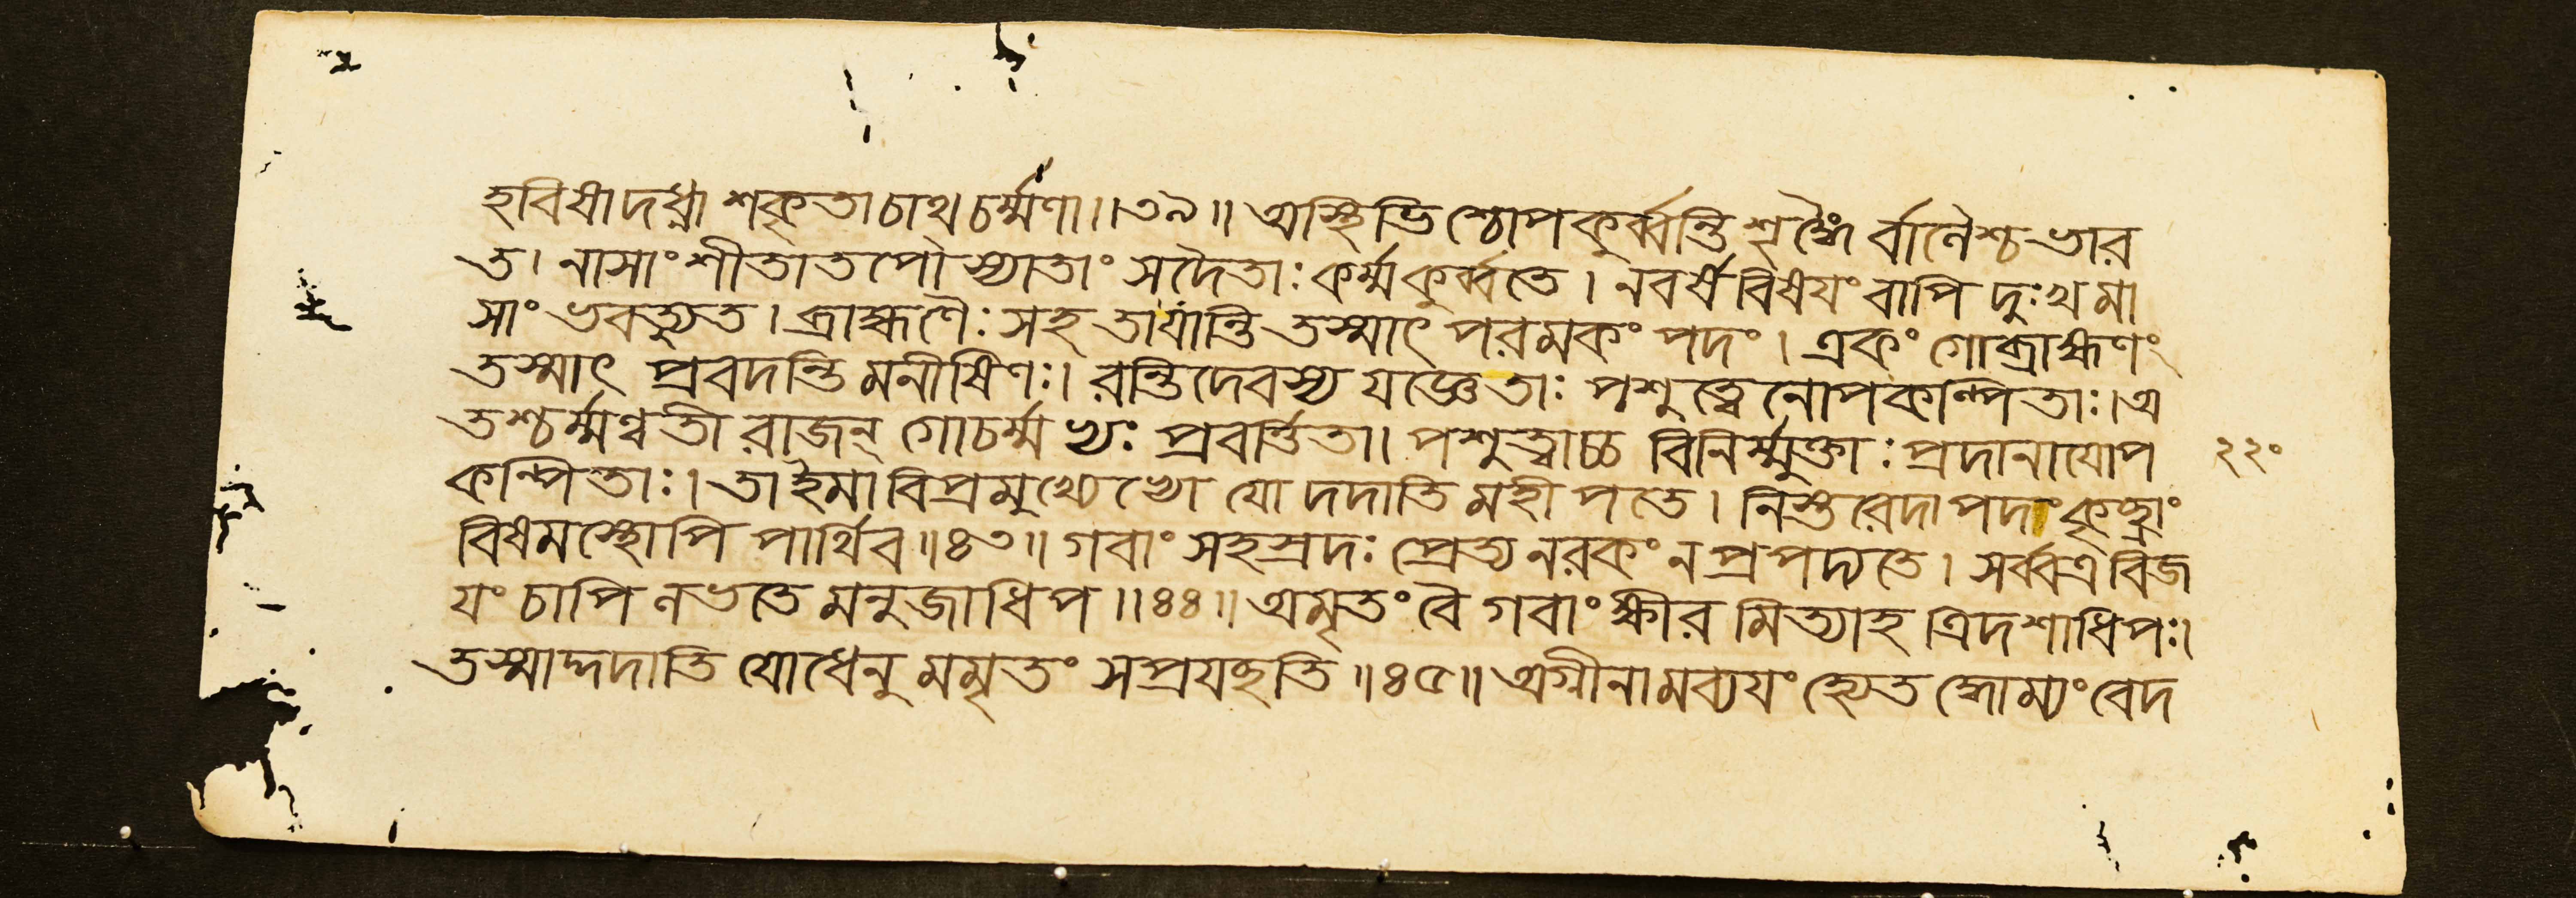 হবিষাদধ্না শকৃতাচাথ চর্ম্মণা।।৩৯॥ অস্থিভিশ্চোপকুর্ব্বন্তি শৃঙ্গৈর্বালৈশ্চ ভার
ত। নাসাং শীতাতপৌ স্যাতাং সদৈতাঃ কর্ম্মকুর্ব্বতে। নবর্ষবিষযং বাপি দুঃখমা
সাং ভবত্যুত। ব্রাহ্মণৈঃ সহ তাযান্তি তস্মাৎ পরমকং পদং। একং গোব্রাহ্মণং
তস্মাৎ প্রবদন্তি মনীষিণঃ। রন্তিদেবস্য যজ্ঞেতাঃ পশুত্বেনোপকল্পিতাঃ। অ
তশ্চর্ম্মণ্বতী রাজন্ গোচর্ম্মভ্যঃ প্রবর্ত্তিতা। পশুত্বাচ্চ বিনির্ম্মুক্তাঃ প্রদানাযোপ
কল্পিতাঃ। তাইমাবিপ্রমুখ্যেভ্যো যো দদাতি মহীপতে। নিস্তরেদাপদং কৃচ্ছ্রাং
বিষমস্থোপি পার্থিব॥৪৩॥ গবাং সহস্রদঃ প্রেত্য নরকং ন প্রপদ্যতে। সর্ব্বত্র বিজ
যং চাপি লভতে মনুজাধিপ॥৪৪॥ অমৃতং বৈ গবাং ক্ষীরমিত্যাহ ত্রিদশাধিপঃ।
তস্মাদ্দদাতি যোধেনুমমৃতং সপ্রযচ্ছতি॥৪৫॥ অগ্নীনামব্যযং হ্যেতদ্ধোম্যং বেদ
২২০